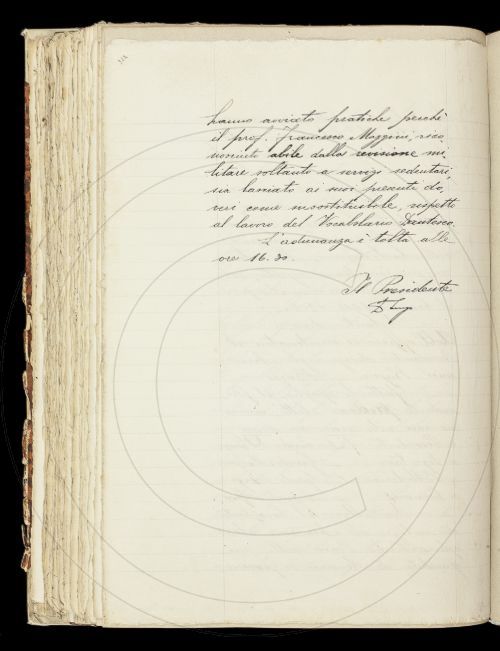 312
hanno avviato pratiche perchè
il prof. Francesco Maggini, rico
nosciuto abile dalla revisione mi-
litare soltanto a servizi sedentari,
sia lasciato ai suoi presenti do,
veri come insostituibile, rispetto
al lavoro del Vocabolario Dantesco.
L'adunanza è tolta alle
ore 16.30.
Il Presidente